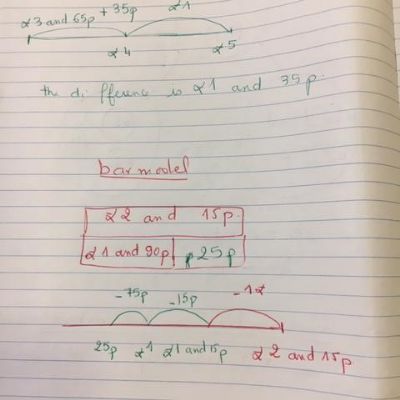 £3 and 65p + 35p £1
£4 £5
the difference is £1 and 35p.
bar model
£2 and 15p
£1 and 90p p25p
-75p -15p -1£
25p £1 £1 and 15p £2 and 15p